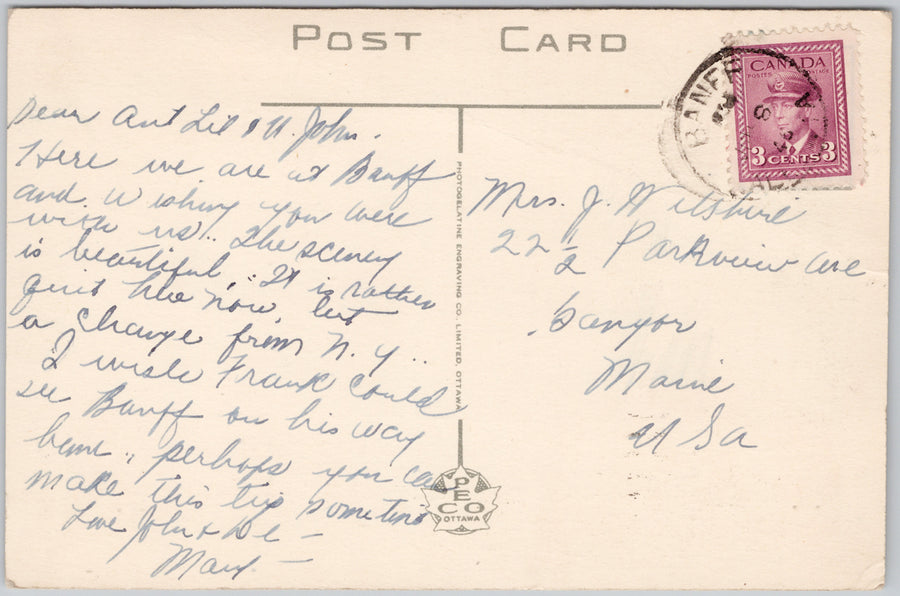 POST CARD
CANADA
POSTES POSTAGE
3 CENTS 3
BANFF
Dear Ant Lil & U. John.
Here we are at Banff
and wishing you were
with us.. The scenery
is beautiful.. It is rather
quit here now, but
a change from N.Y...
I wish Frank could
see Banff on his way
home., perhaps you can
make this trip sometime
Love John &
Mary
Mrs. J. Wiltshire
22 1/2 Parkview Ave
Bangor
Maine
USa
PHOTOGELATINE ENGRAVING CO. LIMITED, OTTAWA
PECO
OTTAWA